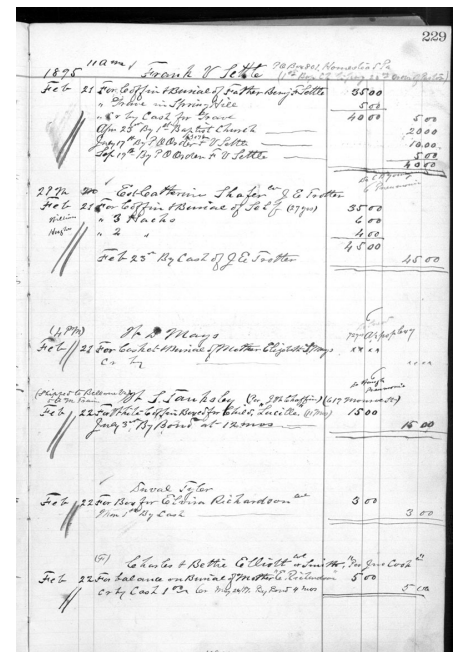 229
11 am
1895 Frank V Settle P.O. Box 801, Homestead Pa
Feb 21 For Coffin & Burial of Father Benj Settle 35 00
" Grave in Spring Hill 5 00
" Cr by Cash for Grave 40 00 5 00
Apr 23 By 1st Baptist Church 20 00
July 17th By P.O. Order F V Settle 10.00
Sep 17th By P.O. Order F V Settle 5 00
40 00
Est Catherine Shafer J E Trotter Pneumonia
Feb 21 For Coffin & Burial of Self (27 yrs) 35 00
William " 3 Hacks 6 00
Hughes " 2 " 4 00
45 00
Feb 23rd By Cash of J E Trotter 45 00
(4 PM) W D Mays
Feb 21 For Casket & Burial of Mother Elizabeth Mays
Cr by
W S Tanksley
Pneumonia
Feb 22 For White Coffin Boxed for Child "Lucille" (17 mo) 15 00
July 3rd By Bond at 12 mos 15 00
Duval Tyler
Feb 22 For Box for Elvira Richardson 3 00
By Cash 3 00
Charles & Bettie Elliott Smith, Per Jno Cook
Feb 22 For balance on Burial of Mother E Richardson 5 00
Cr by Cash By Bond 4 mos 5